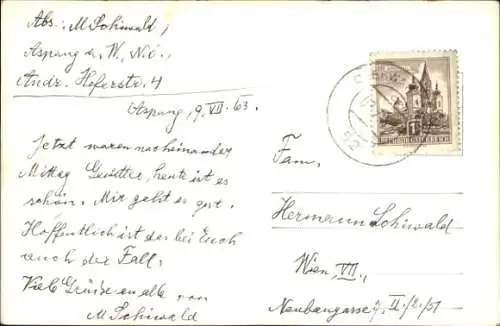 Abs: M Schiwald,
Aspang a. W. N.Ö.
Andr. Hoferstr. 4
Aspang, 9. VII. 63.
Jetzt waren nacheinander
Mittag Gewitter, heute ist es
schön. Mir geht es gut.
Hoffentlich ist das bei Euch
auch der Fall.
Viele Grüße an alle von
M Schiwald
Fam.
Hermann Schiwald
Wien, VII.,
Neubaugasse